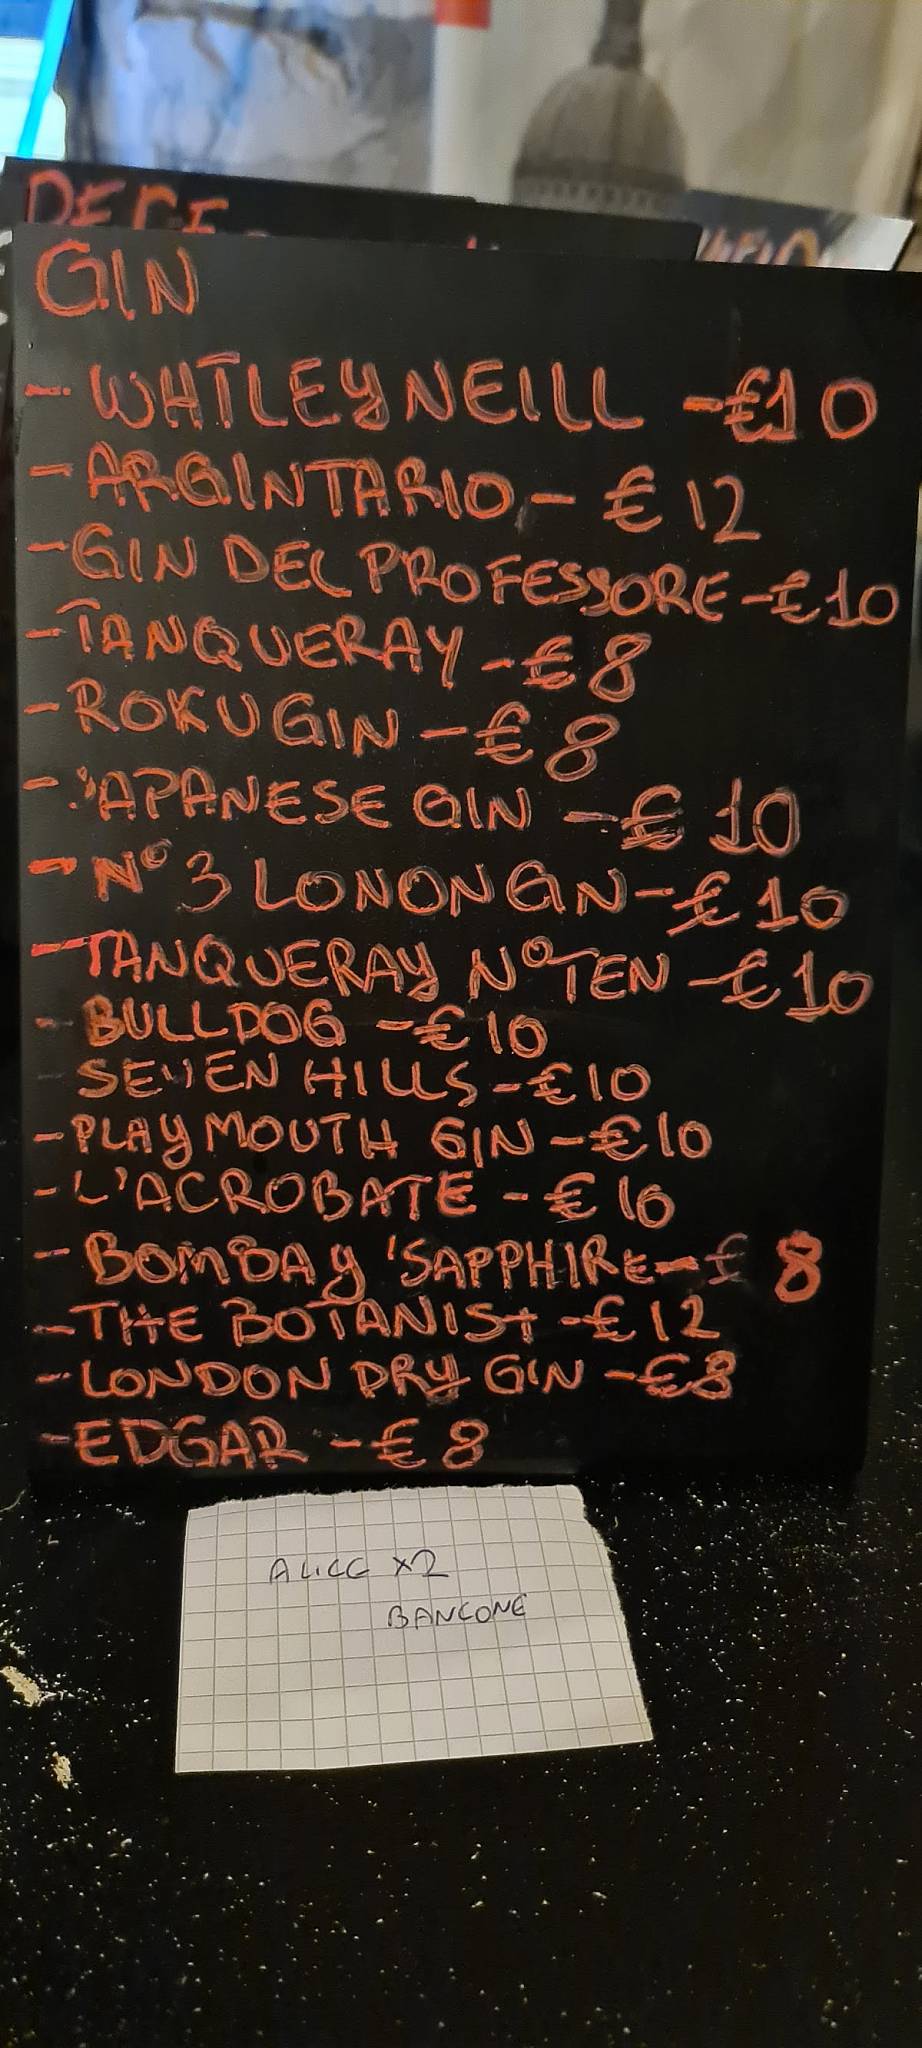 GIN
- WHITLEY NEILL - €10
- ARGINTARIO - € 12
- GIN DEL PROFESSORE - €10
- TANQUERAY - € 8
- ROKU GIN - € 8
- JAPANESE GIN - € 10
- N° 3 LONON GIN - € 10
- TANQUERAY N° TEN - € 10
- BULLDOG - € 10
- SEVEN HILLS - €10
- PLAYMOUTH GIN - €10
- L'ACROBATE - € 10
- BOMBAY 'SAPPHIRE - € 8
- THE BOTANIST - € 12
- LONDON DRY GIN - €8
- EDGAR - € 8
ALICE X2
BANCONE